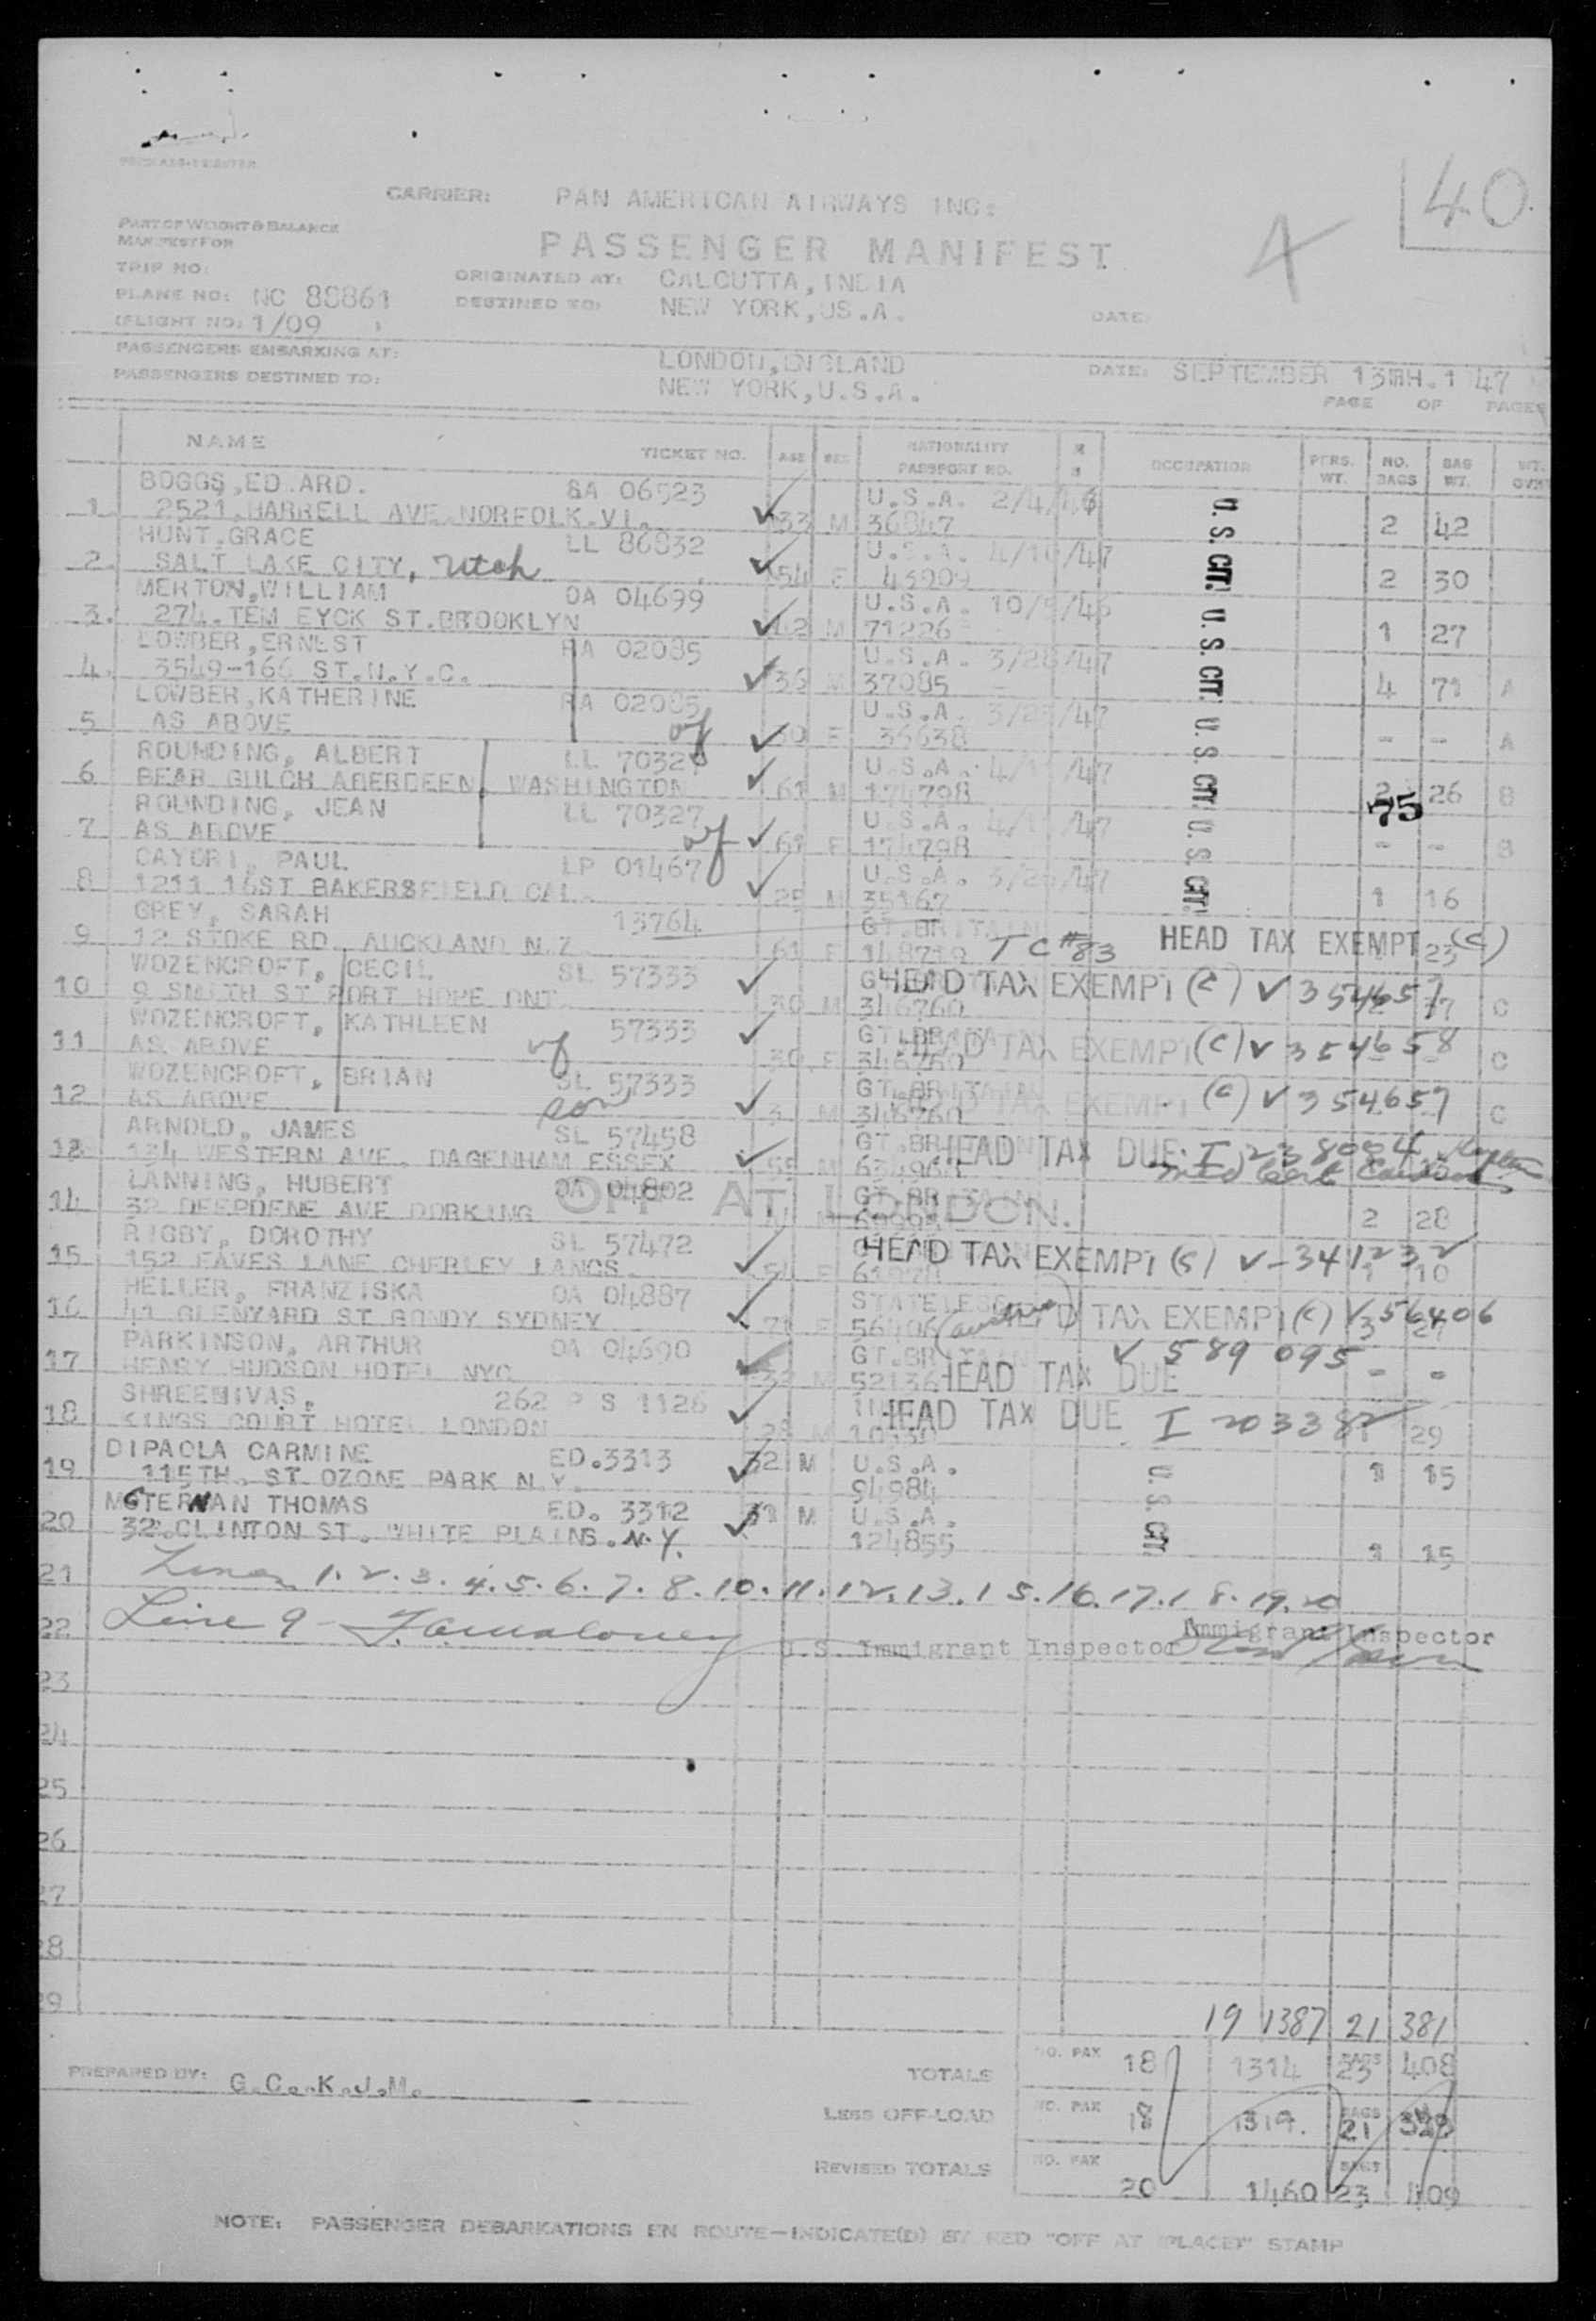 40
CARRIER: PAN AMERICAN AIRWAYS INC:
PART OF WEIGHT & BALANCE
MANIFEST FOR
PASSENGER MANIFEST
TRIP NO:
ORIGINATED AT: CALCUTTA, INDIA
PLANE NO: NC 88861
DESTINED TO: NEW YORK, US.A.
DATE:
(FLIGHT NO: 1/09 )
PASSENGERS EMBARKING AT: LONDON, ENGLAND
DATE: SEPTEMBER 13TH. 1 47
PASSENGERS DESTINED TO: NEW YORK, U.S.A.
PAGE OF PAGES
NAME TICKET NO. AGE SEX NATIONALITY PASSPORT NO. OCCUPATION PERS. WT. NO. BAGS BAG WT.
BOGGS, ED ARD. 06523 U.S.A. 2/4/46
1 2521 HARRELL AVE NORFOLK 33 M 36847 U.S. CIT. 2 42
HUNT, GRACE LL 86832 U.S.A.
2. SALT LAKE CITY, Utah 54 F 43909 2 30
MERTON, WILLIAM OA 04699 U.S.A.
3. 274. TEM EYCK ST. BROOKLYN M 71226 U.S. CIT. 1 27
LOWBER, ERNEST RA 02085 U.S.A.
4. 3549-166 ST. N.Y.C. 36 M 37085 4 71 A
LOWBER, KATHERINE RA 02085 U.S.A.
5 AS ABOVE F U.S. CIT. - - A
ROUNDING, ALBERT LL 70327 U.S.A.
6 BEAR GULCH ABERDEEN WASHINGTON 61 M 174798 26 B
75
ROUNDING, JEAN LL 70327 U.S.A.
7 AS ABOVE 61 F 174798 U.S. CIT. - - B
PAUL LP 01467 U.S.A.
8 1211 16ST BAKERSFIELD CAL. M 35167 1 16
GREY, SARAH 13764 GT. BRITAIN
9 12 STOKE RD. AUCKLAND N.Z. 61 F TC #83 HEAD TAX EXEMPT (C) 23
WOZENCROFT, CECIL SL 57333 HEAD TAX EXEMPT (C) V 354657
10 9 SMITH ST PORT HOPE ONT. 30 M 346760 C
WOZENCROFT, KATHLEEN 57333 HEAD TAX EXEMPT (C) V 354658
11 AS ABOVE 30 F 346760 C
WOZENCROFT, BRIAN SL 57333 TAX EXEMPT (C) V 354657
12 AS ABOVE son M 346760 C
ARNOLD, JAMES SL 57458 HEAD TAX DUE
13 134 WESTERN AVE. DAGENHAM ESSEX M
LANNING, HUBERT OA 04802 OFF AT LONDON.
14 32 DEEPDENE AVE DORKING M 2 28
RIGBY, DOROTHY SL 57472 HEAD TAX EXEMPT V-341232
15 152 EAVES LANE CHERLEY LANCS. F 10
HELLER, FRANZISKA OA 04887 STATELESS TAX EXEMPT (C) V 356406
16 41 GLENYARD ST BONDY SYDNEY 71 F 56406
PARKINSON, ARTHUR OA 04690 GT. BRITAIN V 589 095
17 HENRY HUDSON HOTEL NYC M HEAD TAX DUE - -
SHREENIVAS, 262 P S 1126 HEAD TAX DUE I 203382
18 KINGS COURT HOTEL LONDON 28 M 29
DIPAOLA CARMINE ED.3313 32 M U.S.A.
19 115TH. ST. OZONE PARK N.Y. 94984 U.S. CIT. 1 15
THOMAS ED. 3312 31 M U.S.A.
20 CLINTON ST. WHITE PLAINS. N.Y. 124855 1 15
21 Lines 1.2.3.4.5.6.7.8.10.11.12.13.15.16.17.18.19.20
22 Line 9 - U.S. Immigrant Inspector Immigrant Inspector
23
24
25
26
27
28
29
19 1387 21 381
PREPARED BY: G.C..K.J.M.
TOTALS NO. PAX 18 1314 BAGS 23 408
LESS OFF-LOAD NO. PAX 18 1314. BAGS 21
REVISED TOTALS NO. PAX 20 1460 23 409
NOTE: PASSENGER DEBARKATIONS EN ROUTE—INDICATE(D) BY RED "OFF AT (PLACE)" STAMP